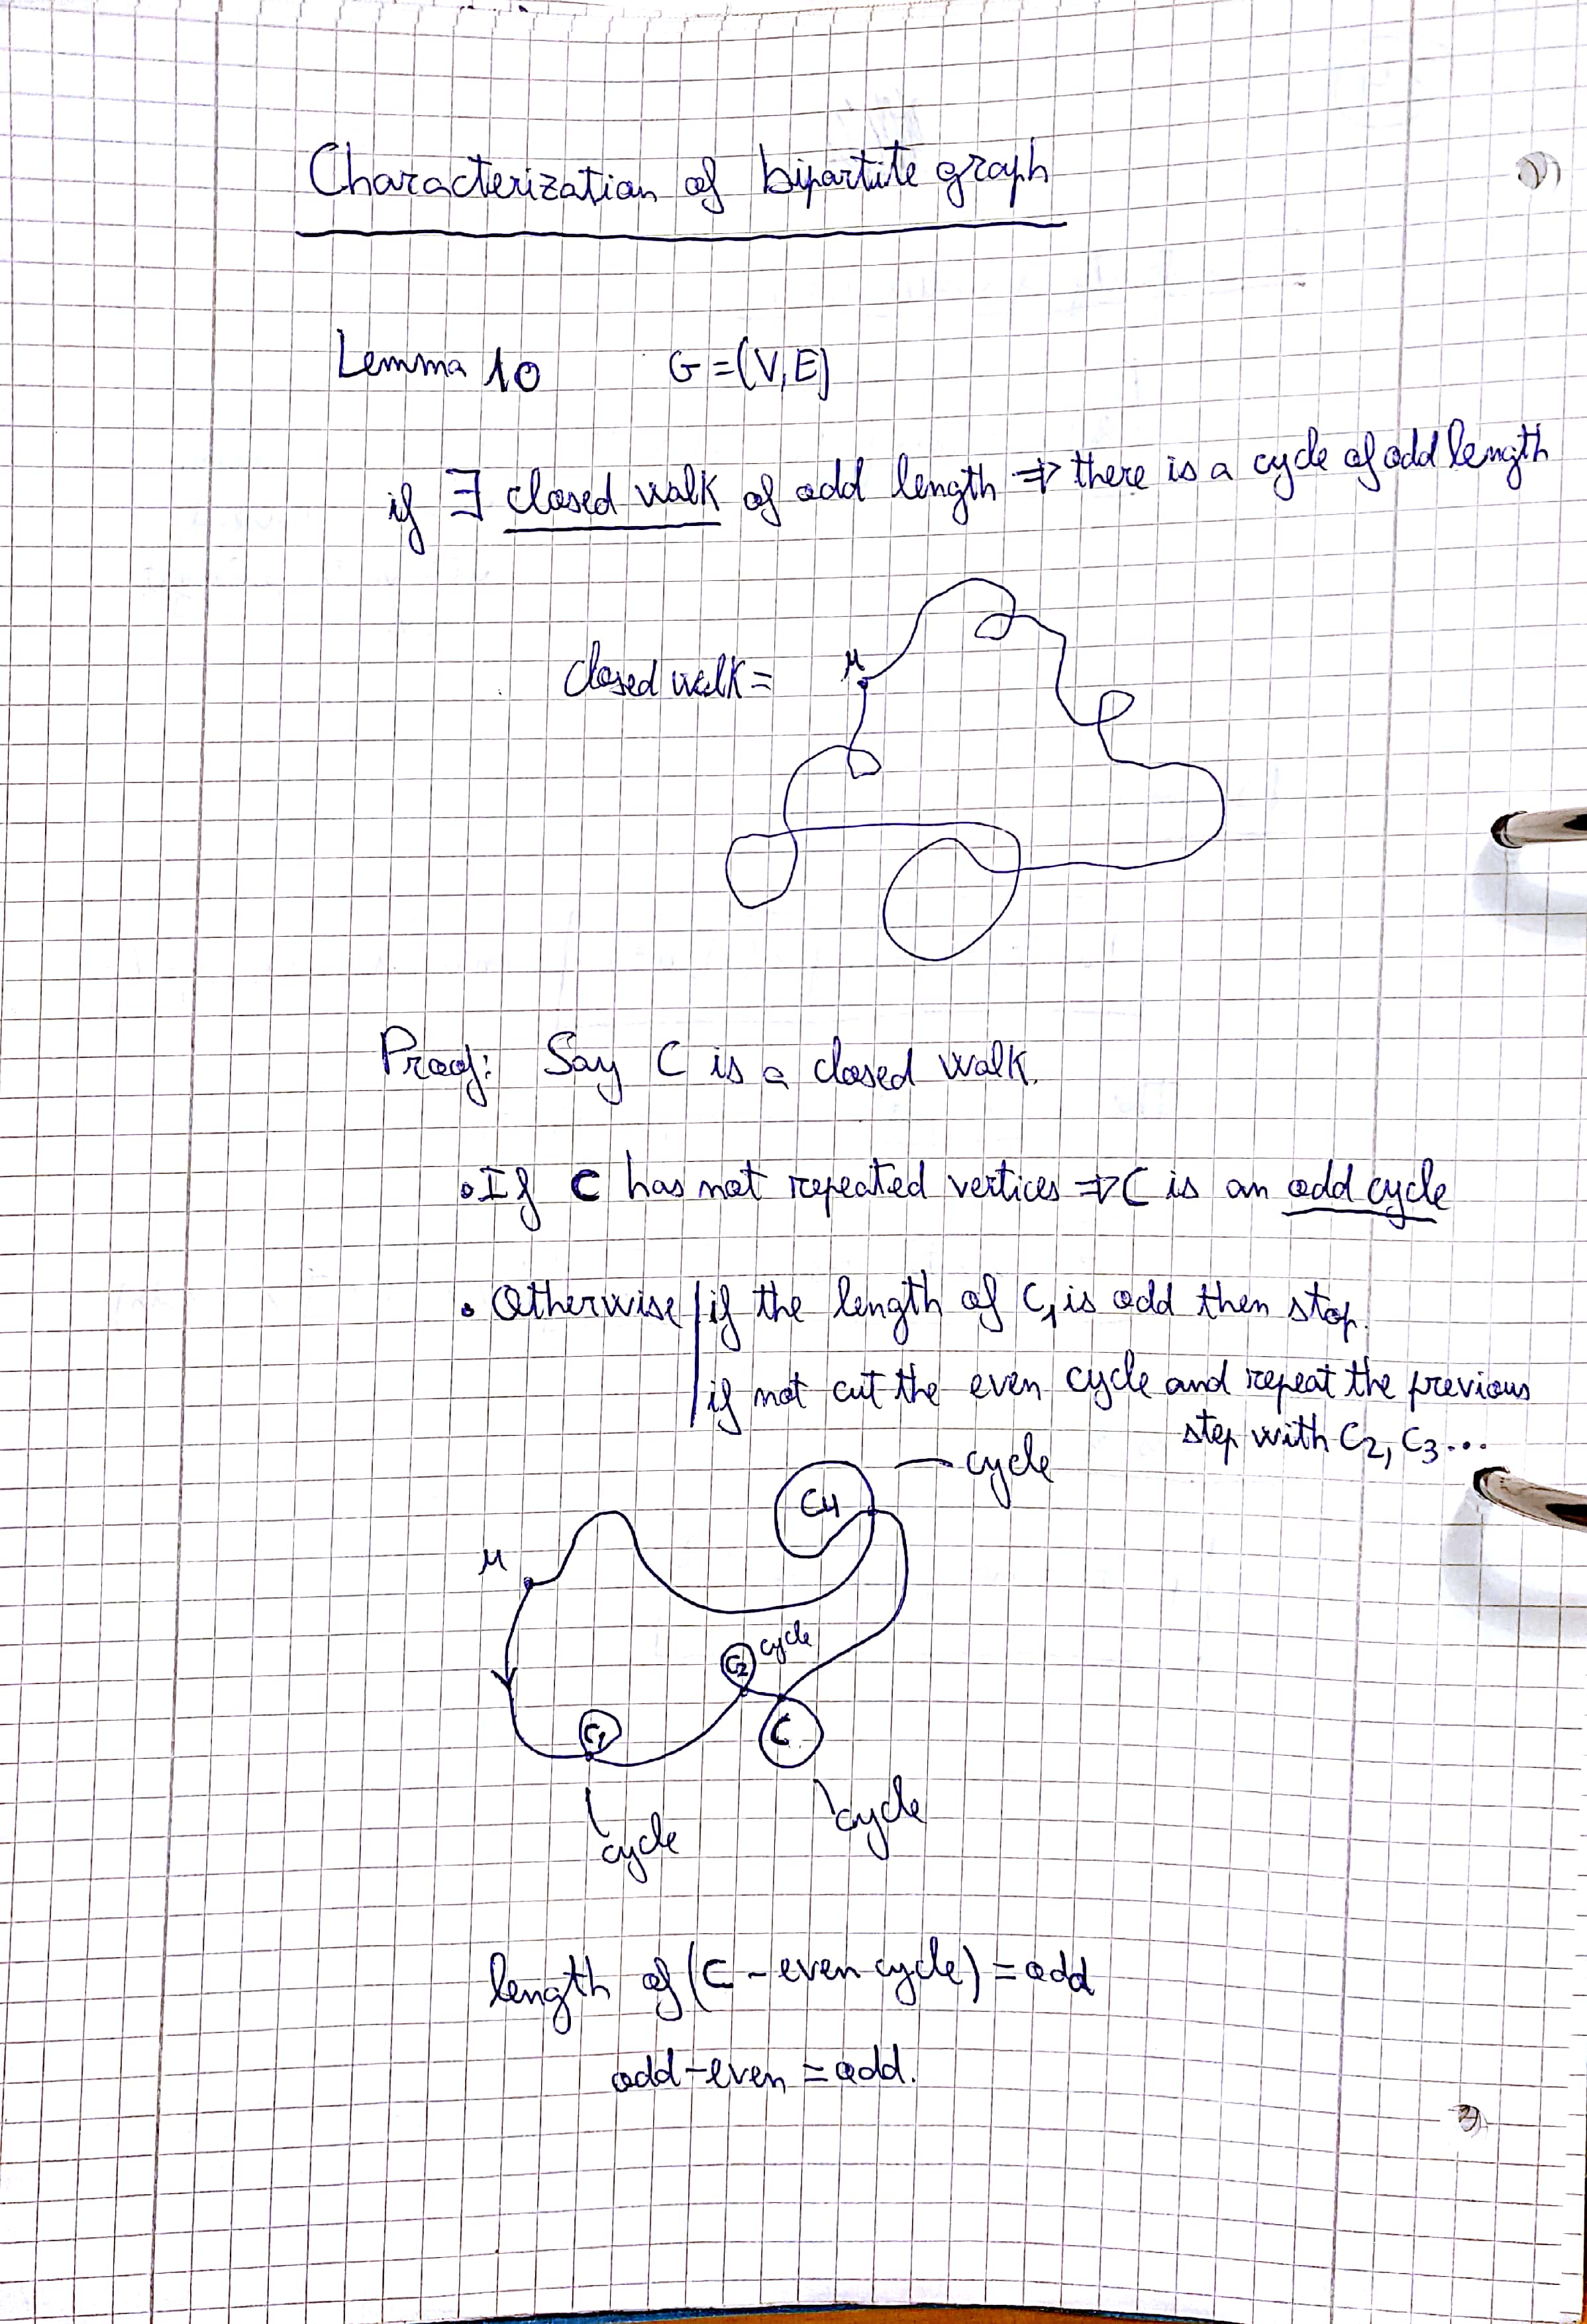 Characterization of bipartite graph
Lemma 10 G=(V,E)
if ∃ closed walk of odd length ⇒ there is a cycle of odd length
closed walk =
u
Proof: Say C is a closed walk.
• If C has not repeated vertices ⇒ C is an odd cycle
• Otherwise | if the length of C₁ is odd then stop.
if not cut the even cycle and repeat the previous
step with C₂, C₃...
cycle
C4
u
cycle
C₂
C₁
C
cycle
cycle
length of (C - even cycle) = odd
odd - even = odd.